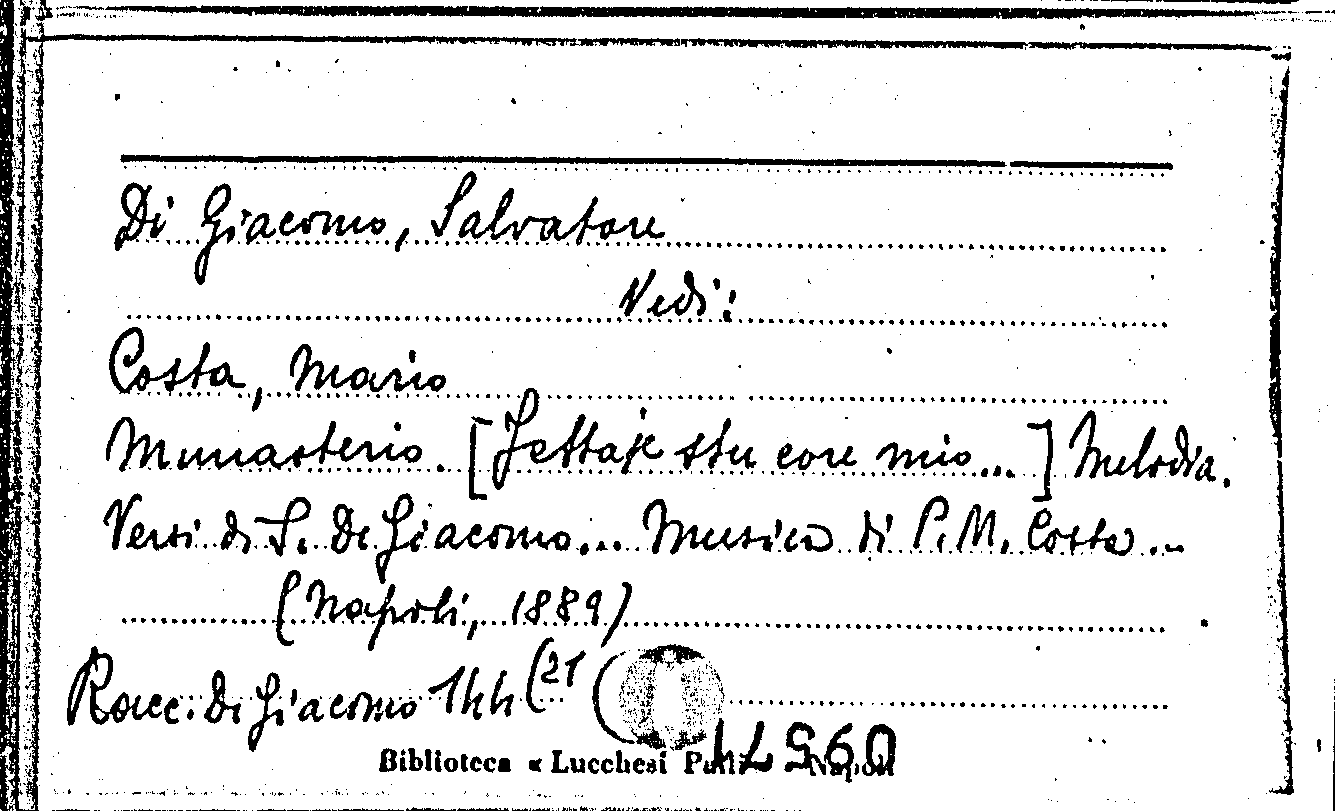 Di Giacomo, Salvatore
Vedi:
Costa, Mario
Munasterio. [Jettaje stu core mio...] Melodia.
Versi di S. Di Giacomo... Musica di P. M. Costa...
(Napoli, 1889)
Racc. Di Giacomo 144 (21
Biblioteca « Lucchesi Napoli